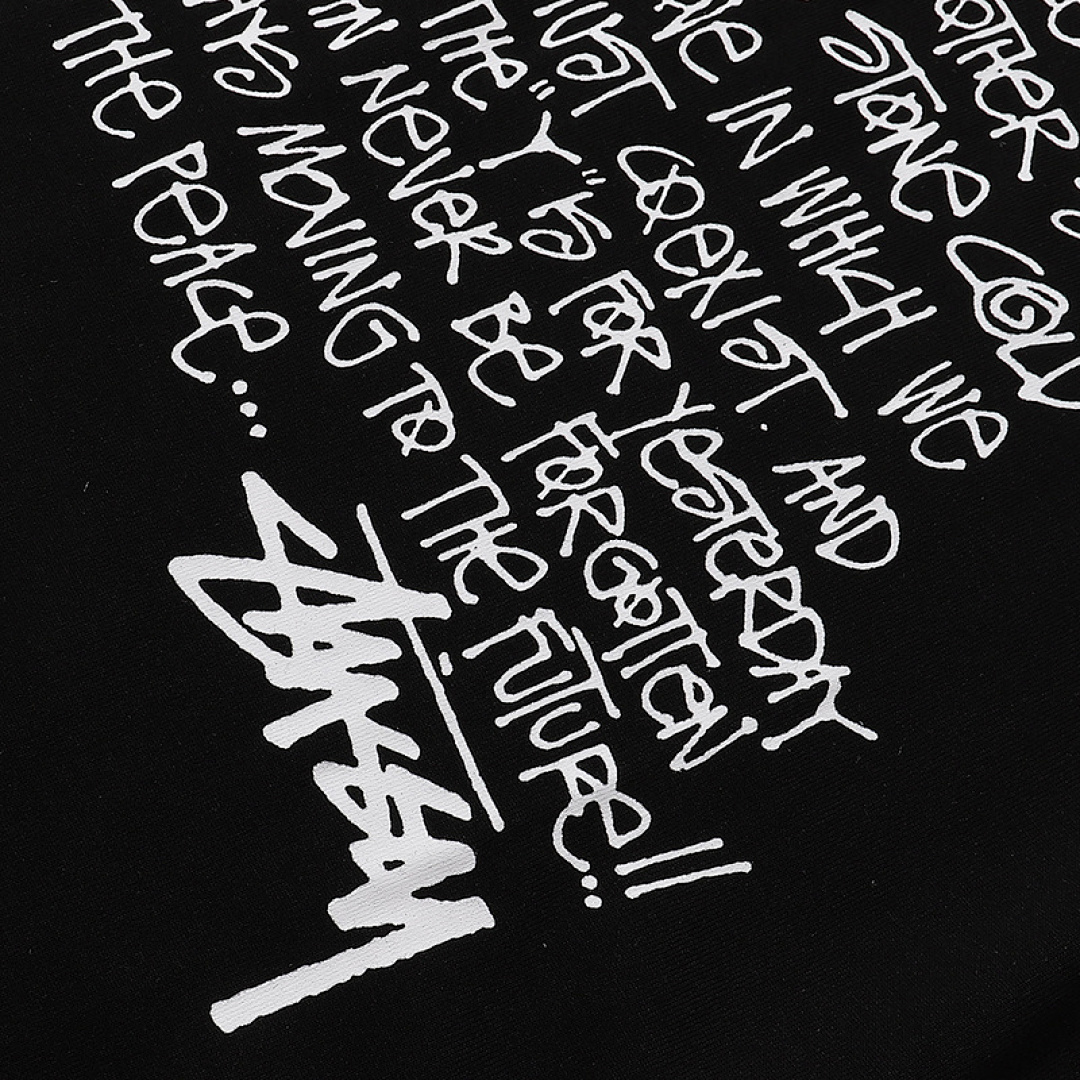 OTHER
STONE COLD
IN WHICH WE
UST COEXIST. AND
THE "Y" IS FOR YESTERDAY
IN NEVER BE FORGOTTEN
AYS MOVING TO THE FUTURE!!
THE PEACE...
Stüssy